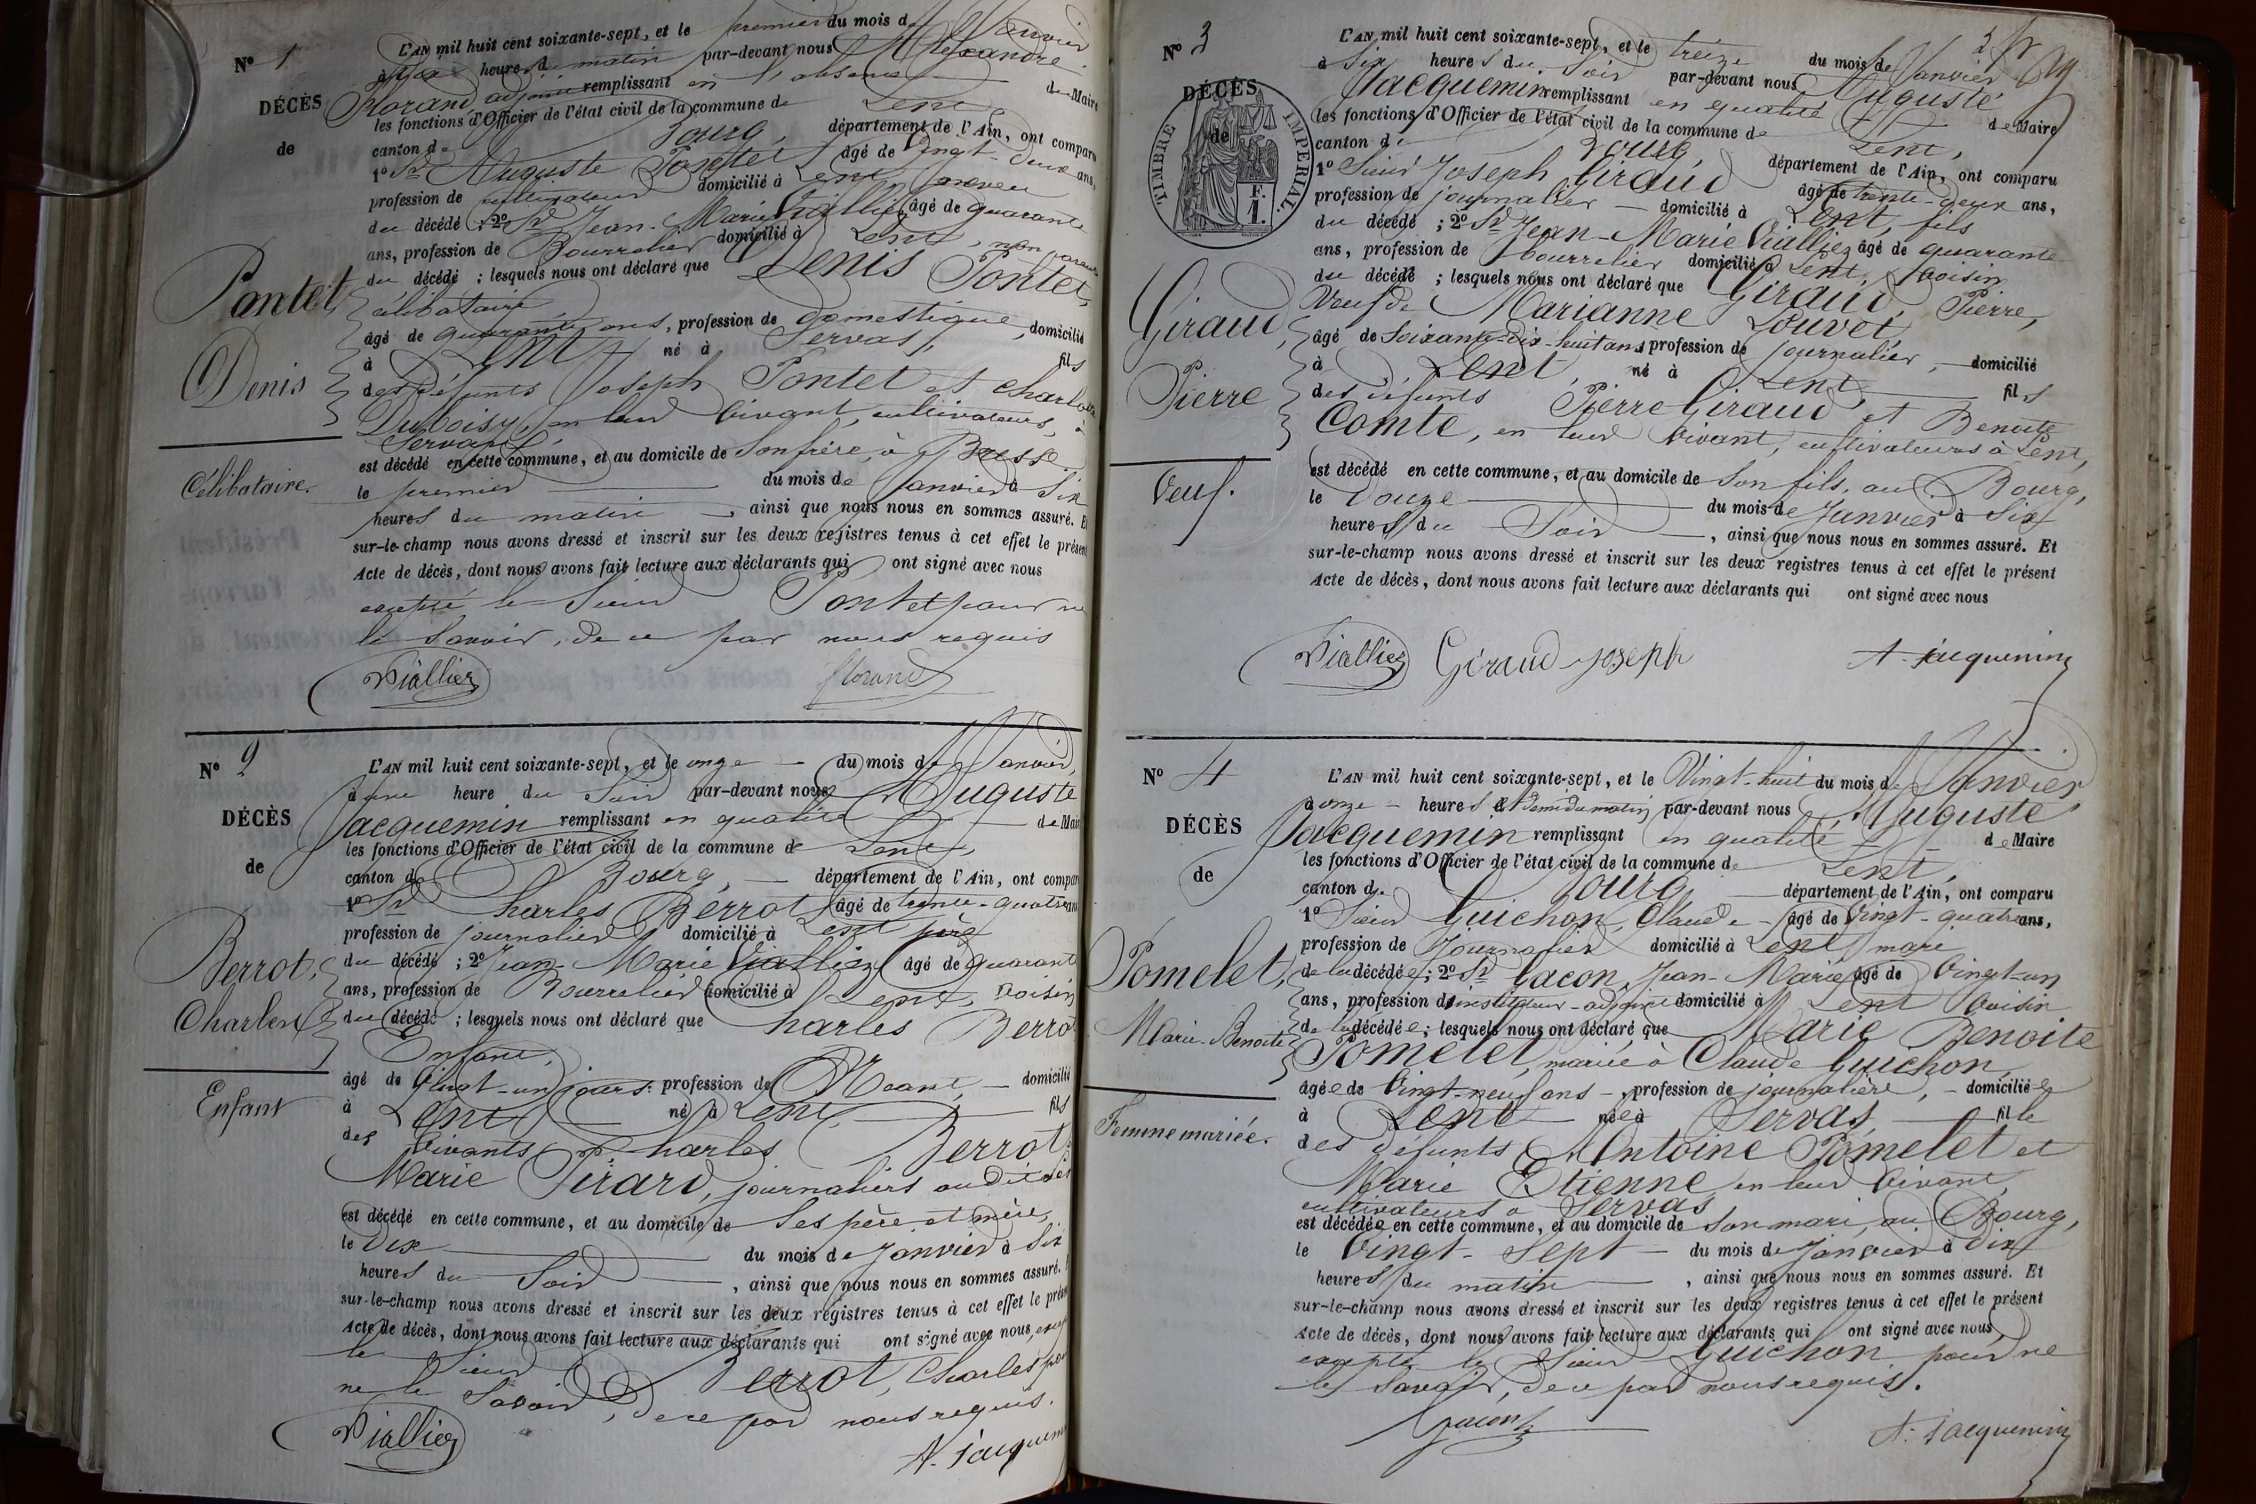 N° 1
DÉCÈS
de
Pontet
Denis
Célibataire.
L'AN mil huit cent soixante-sept, et le premier du mois de Janvier
à heures du matin par-devant nous Alexandre
Florand adjoint remplissant en l'absence de Maire
les fonctions d'Officier de l'état civil de la commune de Lent
canton de Bourg, département de l'Ain, ont comparu
1° Sr Auguste Pontet âgé de Vingt-deux ans,
profession de cultivateur domicilié à Lent, neveu
du décédé ; 2° Sr Jean-Marie Viallier âgé de quarante
ans, profession de Bourrelier domicilié à Lent, non parent
du décédé ; lesquels nous ont déclaré que Denis Pontet,
célibataire,
âgé de quarante ans, profession de domestique, domicilié
à Lent né à Servas, fils
des défunts Joseph Pontet et Charlotte
Duboisy, en leur vivant, cultivateurs, à
Servas,
est décédé en cette commune, et au domicile de Son frère, à
le premier du mois de Janvier à Six
heures du matin, ainsi que nous nous en sommes assuré. Et
sur-le-champ nous avons dressé et inscrit sur les deux registres tenus à cet effet le présent
Acte de décès, dont nous avons fait lecture aux déclarants qui ont signé avec nous
excepté le Sieur Pontet pour ne
le Savoir, de ce par nous requis
Viallier Florand
N° 2
DÉCÈS
de
Berrot,
Charles
Enfant
L'AN mil huit cent soixante-sept, et le onze du mois de Janvier,
à une heure du Soir par-devant nous Auguste
Jacquemin remplissant en qualité de Maire
les fonctions d'Officier de l'état civil de la commune de Lent,
canton de Bourg, département de l'Ain, ont comparu
1° Sr Charles Berrot âgé de trente-quatre ans
profession de journalier domicilié à Lent père
du décédé ; 2° Jean-Marie Viallier âgé de quarante
ans, profession de Bourrelier domicilié à Lent, voisin
du décédé ; lesquels nous ont déclaré que Charles Berrot
Enfant,
âgé de Vingt-un jours, profession de Néant, domicilié
à Lent né à Lent, fils
des vivants Charles Berrot
Marie Pirard, journaliers audit Lent
est décédé en cette commune, et au domicile de Ses père et mère,
le Dix du mois de Janvier à Six
heures du Soir, ainsi que nous nous en sommes assuré. Et
sur-le-champ nous avons dressé et inscrit sur les deux registres tenus à cet effet le présent
Acte de décès, dont nous avons fait lecture aux déclarants qui ont signé avec nous, excepté
le Sieur Berrot, Charles pour
ne le Savoir, de ce par nous requis.
Viallier A. Jacquemin
N° 3
DÉCÈS
de
TIMBRE IMPÉRIAL.
F.
1.
Giraud,
Pierre
Veuf.
L'AN mil huit cent soixante-sept, et le treize du mois de Janvier
à Six heures du Soir par-devant nous Auguste
Jacquemin remplissant en qualité de Maire
les fonctions d'Officier de l'état civil de la commune de Lent,
canton de Bourg, département de l'Ain, ont comparu
1° Sieur Joseph Giraud âgé de trente-deux ans,
profession de journalier domicilié à Lent, fils
du décédé ; 2° Sr Jean-Marie Viallier âgé de quarante
ans, profession de bourrelier domicilié à Lent, voisin
du décédé ; lesquels nous ont déclaré que Giraud, Pierre,
Veuf de Marianne Louvet
âgé de Soixante-dix-huit ans, profession de journalier, domicilié
à Lent, né à Lent, fils
des défunts Pierre Giraud et Benoite
Comte, en leur vivant, cultivateurs à Lent,
est décédé en cette commune, et au domicile de Son fils, au Bourg,
le Douze du mois de Janvier à Six
heures du Soir, ainsi que nous nous en sommes assuré. Et
sur-le-champ nous avons dressé et inscrit sur les deux registres tenus à cet effet le présent
Acte de décès, dont nous avons fait lecture aux déclarants qui ont signé avec nous
Viallier Giraud joseph A. Jacquemin
N° 4
DÉCÈS
de
Pomelet,
Marie-Benoite
Femme mariée.
L'AN mil huit cent soixante-sept, et le Vingt-huit du mois de Janvier
à onze heures et demi du matin par-devant nous Auguste
Jacquemin remplissant en qualité de Maire
les fonctions d'Officier de l'état civil de la commune de Lent,
canton de Bourg département de l'Ain, ont comparu
1° Sieur Guichon, Claude âgé de Vingt-quatre ans,
profession de Journalier domicilié à Lent, mari
de la décédée ; 2° Sr Gacon, Jean-Marie âgé de Vingt-un
ans, profession d'instituteur-adjoint domicilié à Lent voisin
de la décédée ; lesquels nous ont déclaré que Marie Benoite
Pomelet, mariée à Claude Guichon,
âgée de Vingt-neuf ans, profession de journalière, domiciliée
à Lent née à Servas, fille
des défunts Antoine Pomelet et
Marie Etienne en leur vivant,
cultivateurs à Servas
est décédée en cette commune, et au domicile de Son mari, au Bourg,
le Vingt-Sept du mois de Janvier à Dix
heures du matin, ainsi que nous nous en sommes assuré. Et
sur-le-champ nous avons dressé et inscrit sur les deux registres tenus à cet effet le présent
Acte de décès, dont nous avons fait lecture aux déclarants qui ont signé avec nous,
excepté le Sieur Guichon pour ne
le Savoir, de ce par nous requis.
Gacon A. Jacquemin